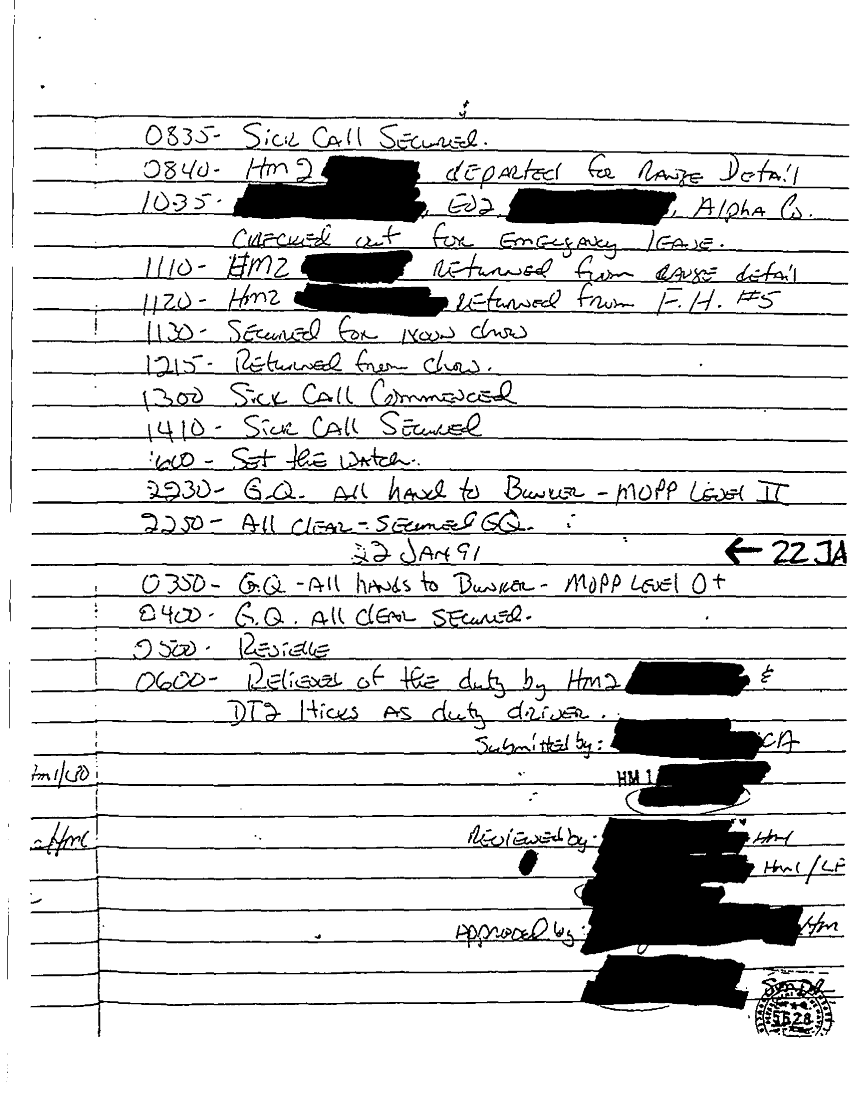 0835- Sick Call Secured.
0840- Hm2 departed for Range Detail
1035- , EO2 , Alpha Co.
Checked out for Emergency leave.
1110- HM2 Returned from range detail
1120- Hm2 Returned from F.H. #5
1130- Secured for noon chow
1215- Returned from chow.
1300 Sick Call Commenced
1410- Sick Call Secured
1600- Set the watch.
2230- G.Q. All hand to Bunker - MOPP Level II
2250- All clear - secured GQ.
22 JAN 91 ← 22 JA
0350- G.Q. - All hands to Bunker - MOPP Level 0+
0400- G.Q. All clear secured.
0500- Revielle
0600- Relieved of the duty by Hm2 &
DT2 Hicks as duty driver.
Submitted by: CA
HM 1
Reviewed by: HM1
Hm1/LP
Approved by: Hm
5628